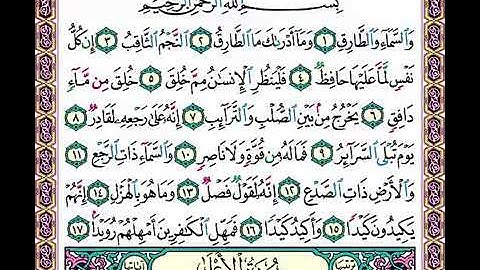 بِسْمِ ٱللَّهِ ٱلرَّحْمَٰنِ ٱلرَّحِيمِ
وَٱلسَّمَآءِ وَٱلطَّارِقِ ١ وَمَآ أَدْرَىٰكَ مَا ٱلطَّارِقُ ٢ ٱلنَّجْمُ ٱلثَّاقِبُ ٣ إِن كُلُّ
نَفْسٍ لَّمَّا عَلَيْهَا حَافِظٌ ٤ فَلْيَنظُرِ ٱلْإِنسَٰنُ مِمَّ خُلِقَ ٥ خُلِقَ مِن مَّآءٍ
دَافِقٍ ٦ يَخْرُجُ مِنۢ بَيْنِ ٱلصُّلْبِ وَٱلتَّرَآئِبِ ٧ إِنَّهُۥ عَلَىٰ رَجْعِهِۦ لَقَادِرٌ ٨
يَوْمَ تُبْلَى ٱلسَّرَآئِرُ ٩ فَمَا لَهُۥ مِن قُوَّةٍ وَلَا نَاصِرٍ ١٠ وَٱلسَّمَآءِ ذَاتِ ٱلرَّجْعِ ١١
وَٱلْأَرْضِ ذَاتِ ٱلصَّدْعِ ١٢ إِنَّهُۥ لَقَوْلٌ فَصْلٌ ١٣ وَمَا هُوَ بِٱلْهَزْلِ ١٤ إِنَّهُمْ
يَكِيدُونَ كَيْدًا ١٥ وَأَكِيدُ كَيْدًا ١٦ فَمَهِّلِ ٱلْكَٰفِرِينَ أَمْهِلْهُمْ رُوَيْدًۢا ١٧
سُورَةُ ٱلْأَعْلَىٰ